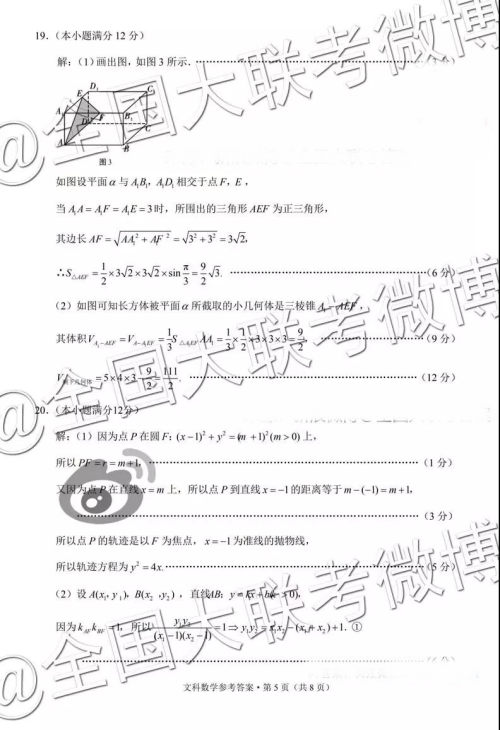 19.（本小题满分 12 分）
解：（1）画出图，如图 3 所示.
图 3
如图设平面 α 与 A₁B₁，A₁D₁ 相交于点 F，E，
当 A₁A = A₁F = A₁E = 3 时，所围出的三角形 AEF 为正三角形，
其边长 AF = √(AA₁² + A₁F²) = √(3² + 3²) = 3√2，
∴S△AEF = 1/2 × 3√2 × 3√2 × sin π/3 = 9/2 √3. （6 分）
（2）如图可知长方体被平面 α 所截取的小几何体是三棱锥 A₁ - AEF，
其体积 V_{A₁-AEF} = V_{A-A₁EF} = 1/3 S△A₁EF AA₁ = 1/3 × 1/2 × 3×3×3 = 9/2, （9 分）
V剩下几何体 = 5×4×3 - 9/2 = 111/2. （12 分）
20.（本小题满分12分）
解：（1）因为点 P 在圆 F：(x − 1)² + y² = (m + 1)² (m > 0) 上，
所以 PF = r = m + 1， （1 分）
又因为点 P 在直线 x = m 上，所以点 P 到直线 x = −1 的距离等于 m − (−1) = m + 1，
（3 分）
所以点 P 的轨迹是以 F 为焦点，x = −1 为准线的抛物线，
所以轨迹方程为 y² = 4x. （5 分）
（2）设 A(x₁, y₁)，B(x₂, y₂)，直线AB：y = kx + b
因为 k_{AF} k_{BF} = 1，所以 y₁y₂/((x₁ − 1)(x₂ − 1)) = 1 ⇒ y₁y₂ = x₁x₂ − (x₁ + x₂) + 1. ①
文科数学参考答案·第 5 页（共 8 页）
@全国大联考微博
@全国大联考微博
@全国大联考微博